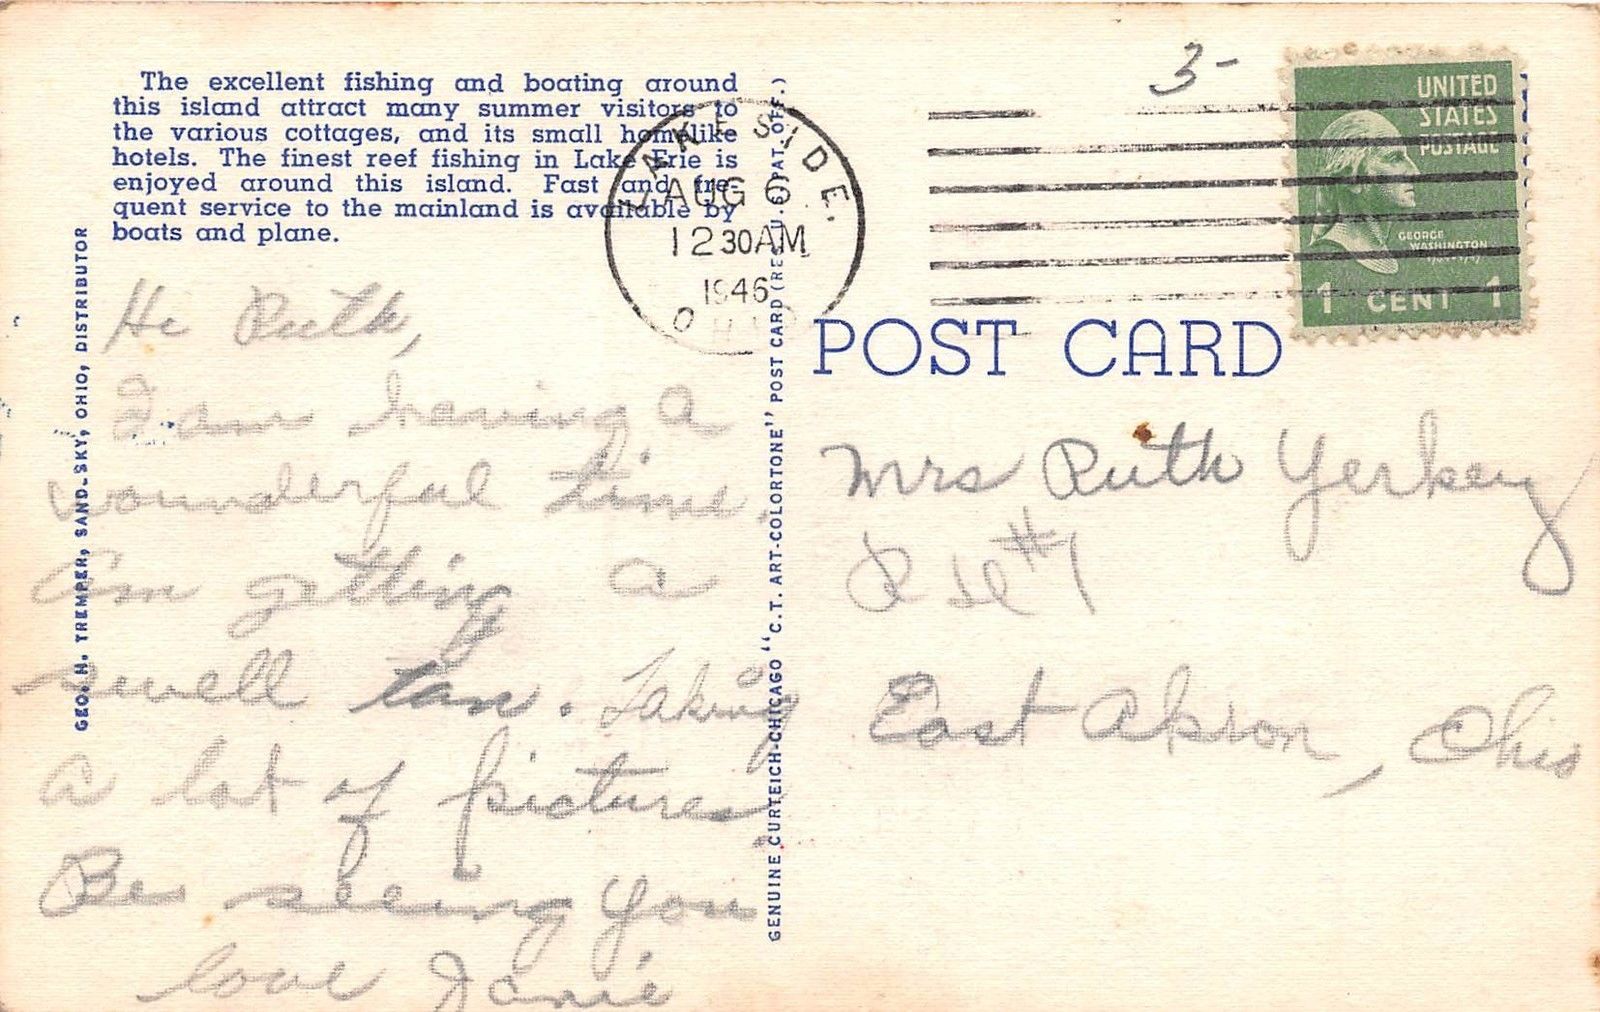 The excellent fishing and boating around
this island attract many summer visitors to
the various cottages, and its small homelike
hotels. The finest reef fishing in Lake Erie is
enjoyed around this island. Fast and fre-
quent service to the mainland is available by
boats and plane.
GEO. H. TREMPER, SANDUSKY, OHIO, DISTRIBUTOR
Hi Ruth,
I am having a
wounderful time.
Am getting a
swell tan. Taking
a lot of pictures.
Be seeing you
love Janie
LAKESIDE.
AUG 6
12 30 AM
1946
OHIO
GENUINE CURTEICH-CHICAGO "C.T. ART-COLORTONE" POST CARD (REG. U.S. PAT. OFF.)
3-
UNITED
STATES
POSTAGE
GEORGE
WASHINGTON
1 CENT 1
POST CARD
Mrs Ruth Yerkey
#7
East Akron, Ohio